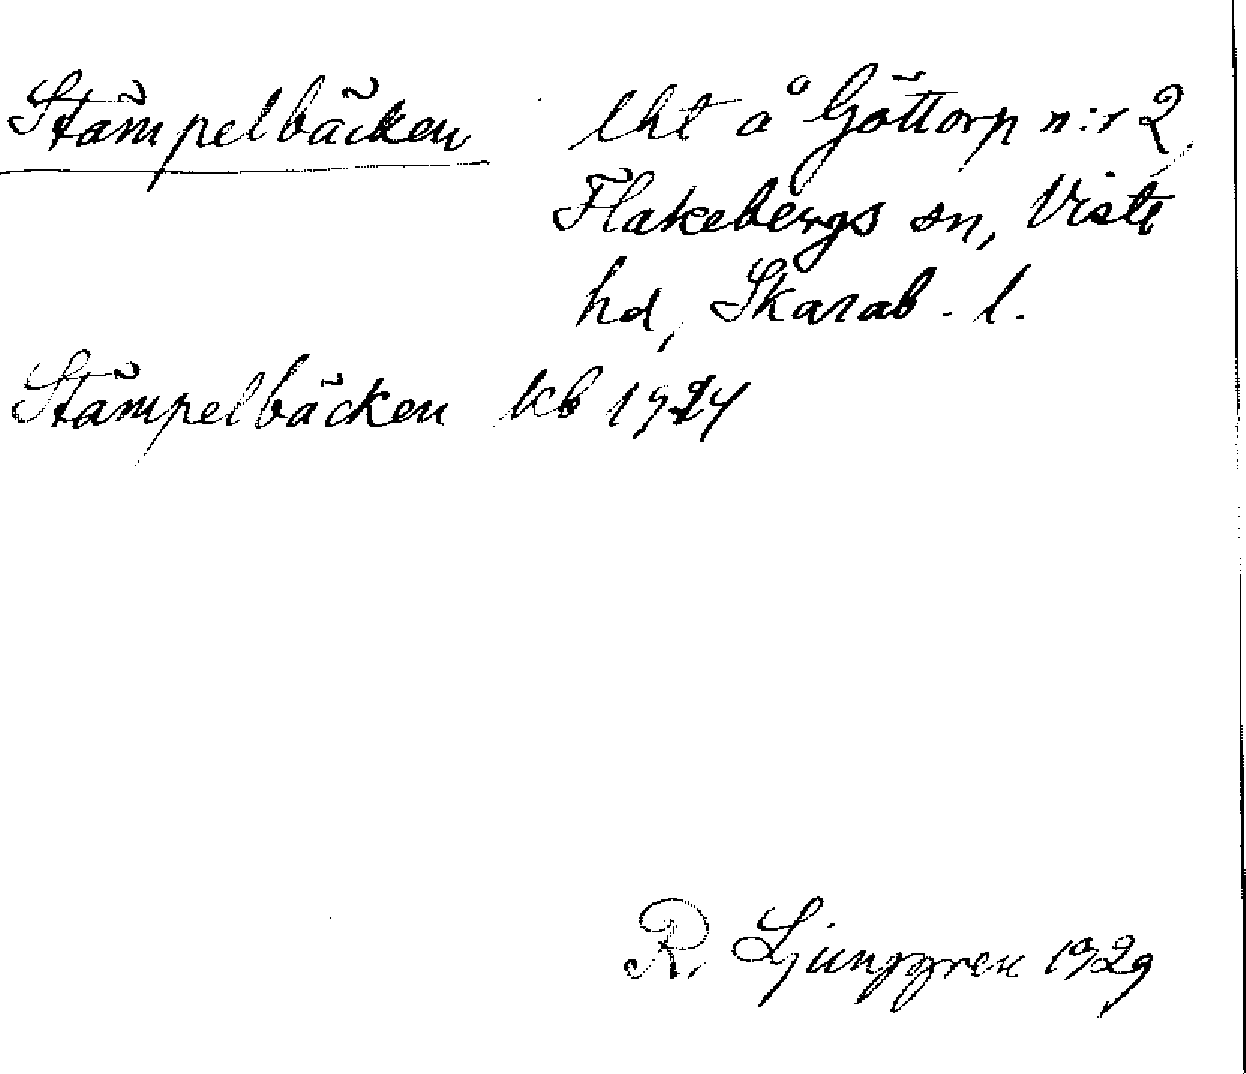 Stämpelbäcken lht å Göttorp n:r 2,
Flakebergs sn, Viste
hd, Skarab. l.
Stämpelbäcken kb 1924
R. Ljunggren 1929